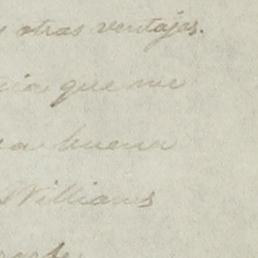 otras ventajas.
que me
buena
Williams